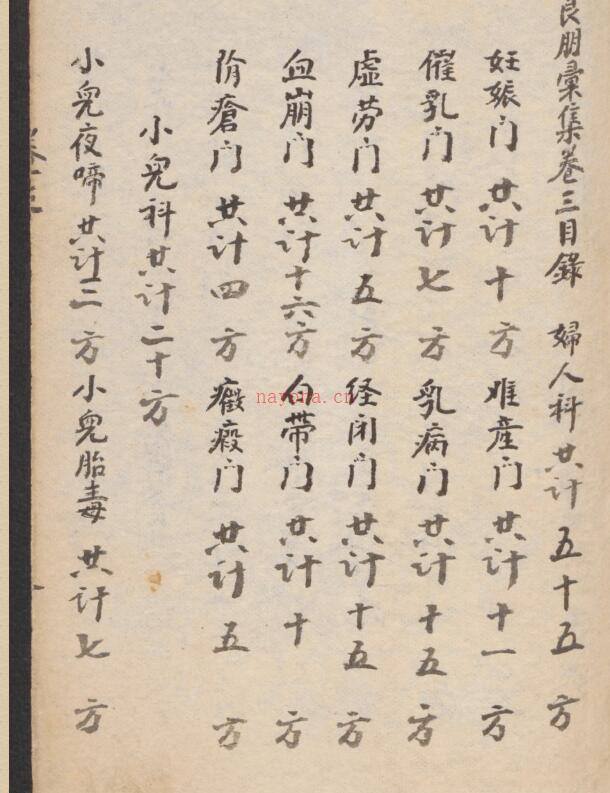 良朋彙集卷三目錄 婦人科共计五十五方
妊娠门共计十方 难產门共计十一方
催乳门共计七方 乳病门共计十五方
虚劳门共计五方 経闭门共计十五方
血崩门共计十六方 白带门共计十方
阴瘡门共计四方 癥瘕门共计五方
小兒科共计二十方
小兒夜啼共计三方 小兒胎毒共计七方
nayona.cn